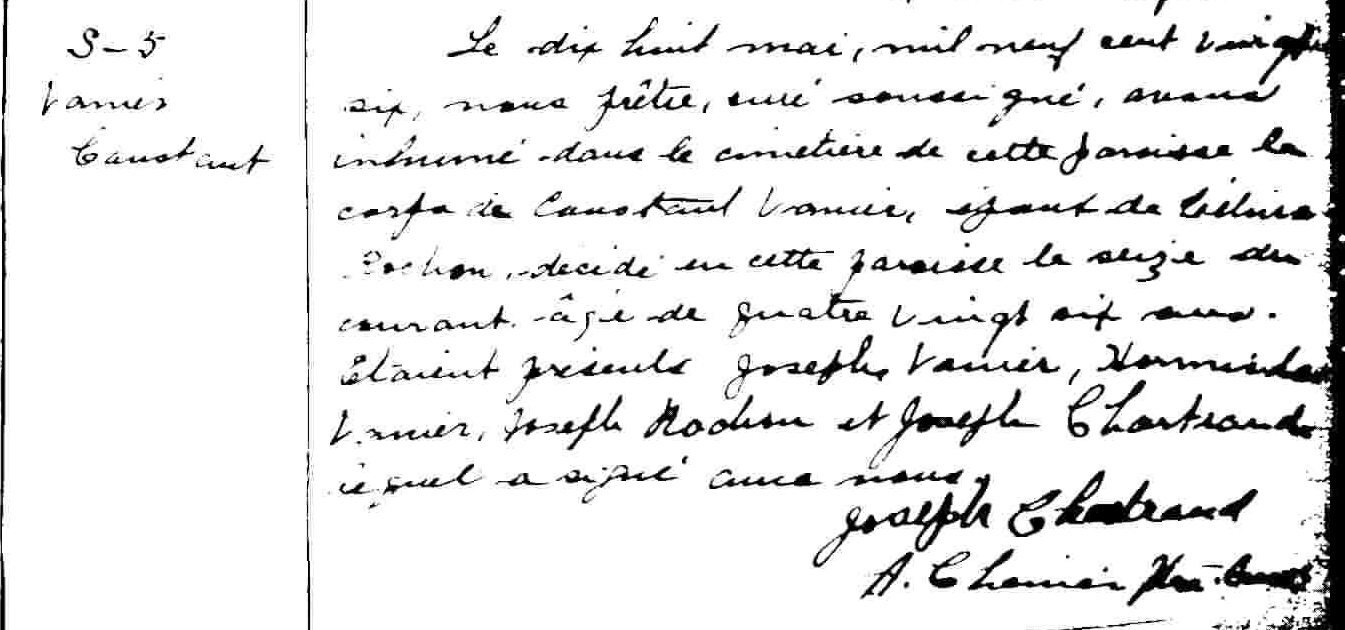 S-5
Vanier
Constant
Le dix huit mai, mil neuf cent vingt
six, nous prêtre, curé soussigné, avons
inhumé dans le cimetière de cette paroisse le
corps de Constant Vanier, époux de Célina
Rochon, décédé en cette paroisse le seize du
courant. âgé de quatre vingt six ans.
Etaient présents Joseph Vanier, Hormisdas
Vanier, Joseph Rochon et Joseph Chartrand
lequel a signé avec nous.
Joseph Chartrand
A. Chenier Ptre. Curé